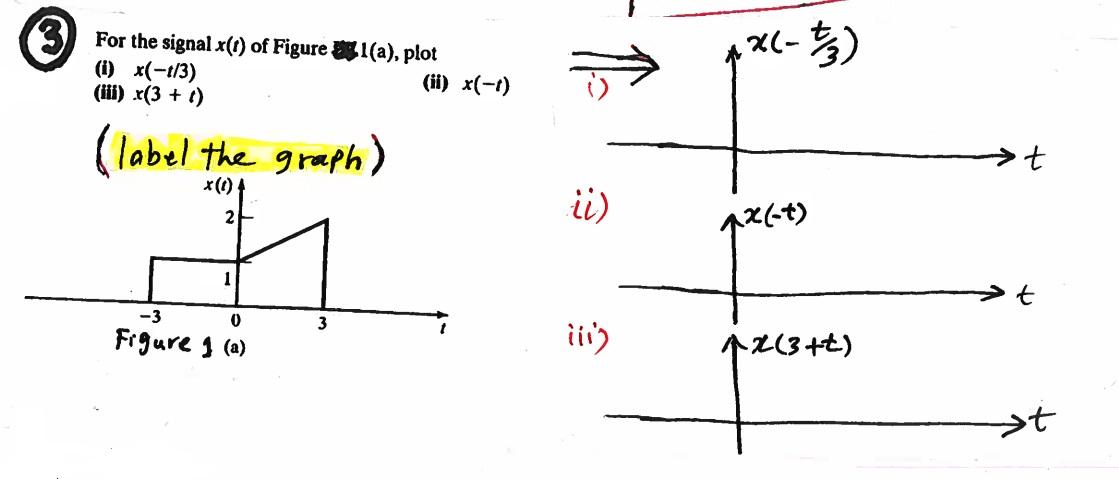 3
For the signal x(t) of Figure 1(a), plot
(i) x(−t/3)
(ii) x(−t)
(iii) x(3 + t)
(label the graph)
x(t)
2
1
−3 0 3 t
Figure 1 (a)
i)
x(-t/3)
t
ii)
x(-t)
t
iii)
x(3+t)
t